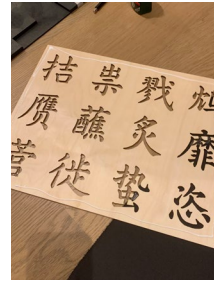 拮祟戮
赝蘸炙靡
徙蛰恣